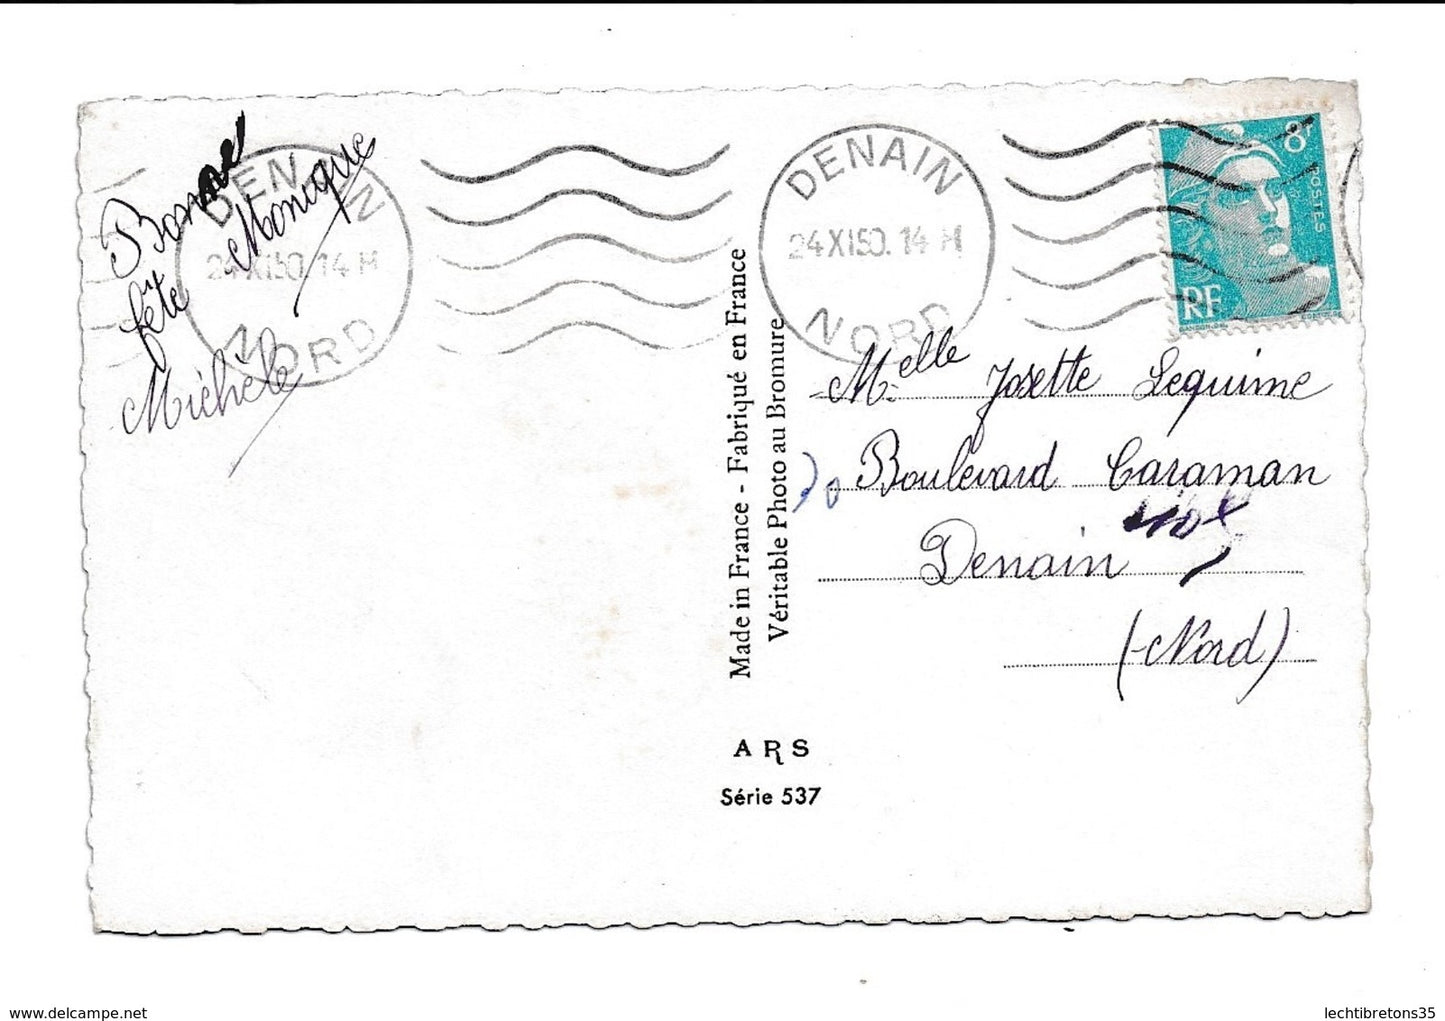 Bonne
fête
Monique
Michèle
DENAIN
24 XI 50. 14 H
NORD
DENAIN
24 XI 50. 14 H
NORD
8f
POSTES
RF
GANDON. DEL
Made in France - Fabriqué en France
Véritable Photo au Bromure
Melle Josette Lequime
Boulevard Caraman
Denain
(Nord)
ARS
Série 537
www.delcampe.net
lechtibretons35